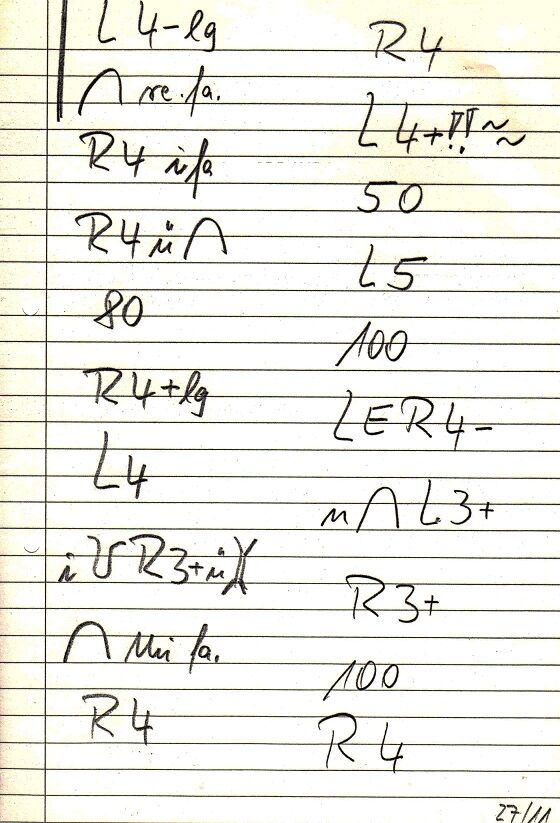 L 4-lg
⋂ re.fa.
R4 i fa
R4 ü ⋂
80
R4+lg
L4
⋂ Mi fa.
R4
R4
L4+!! ~~
50
L5
100
LER4-
⋂ L3+
R3+
100
R4
27/11